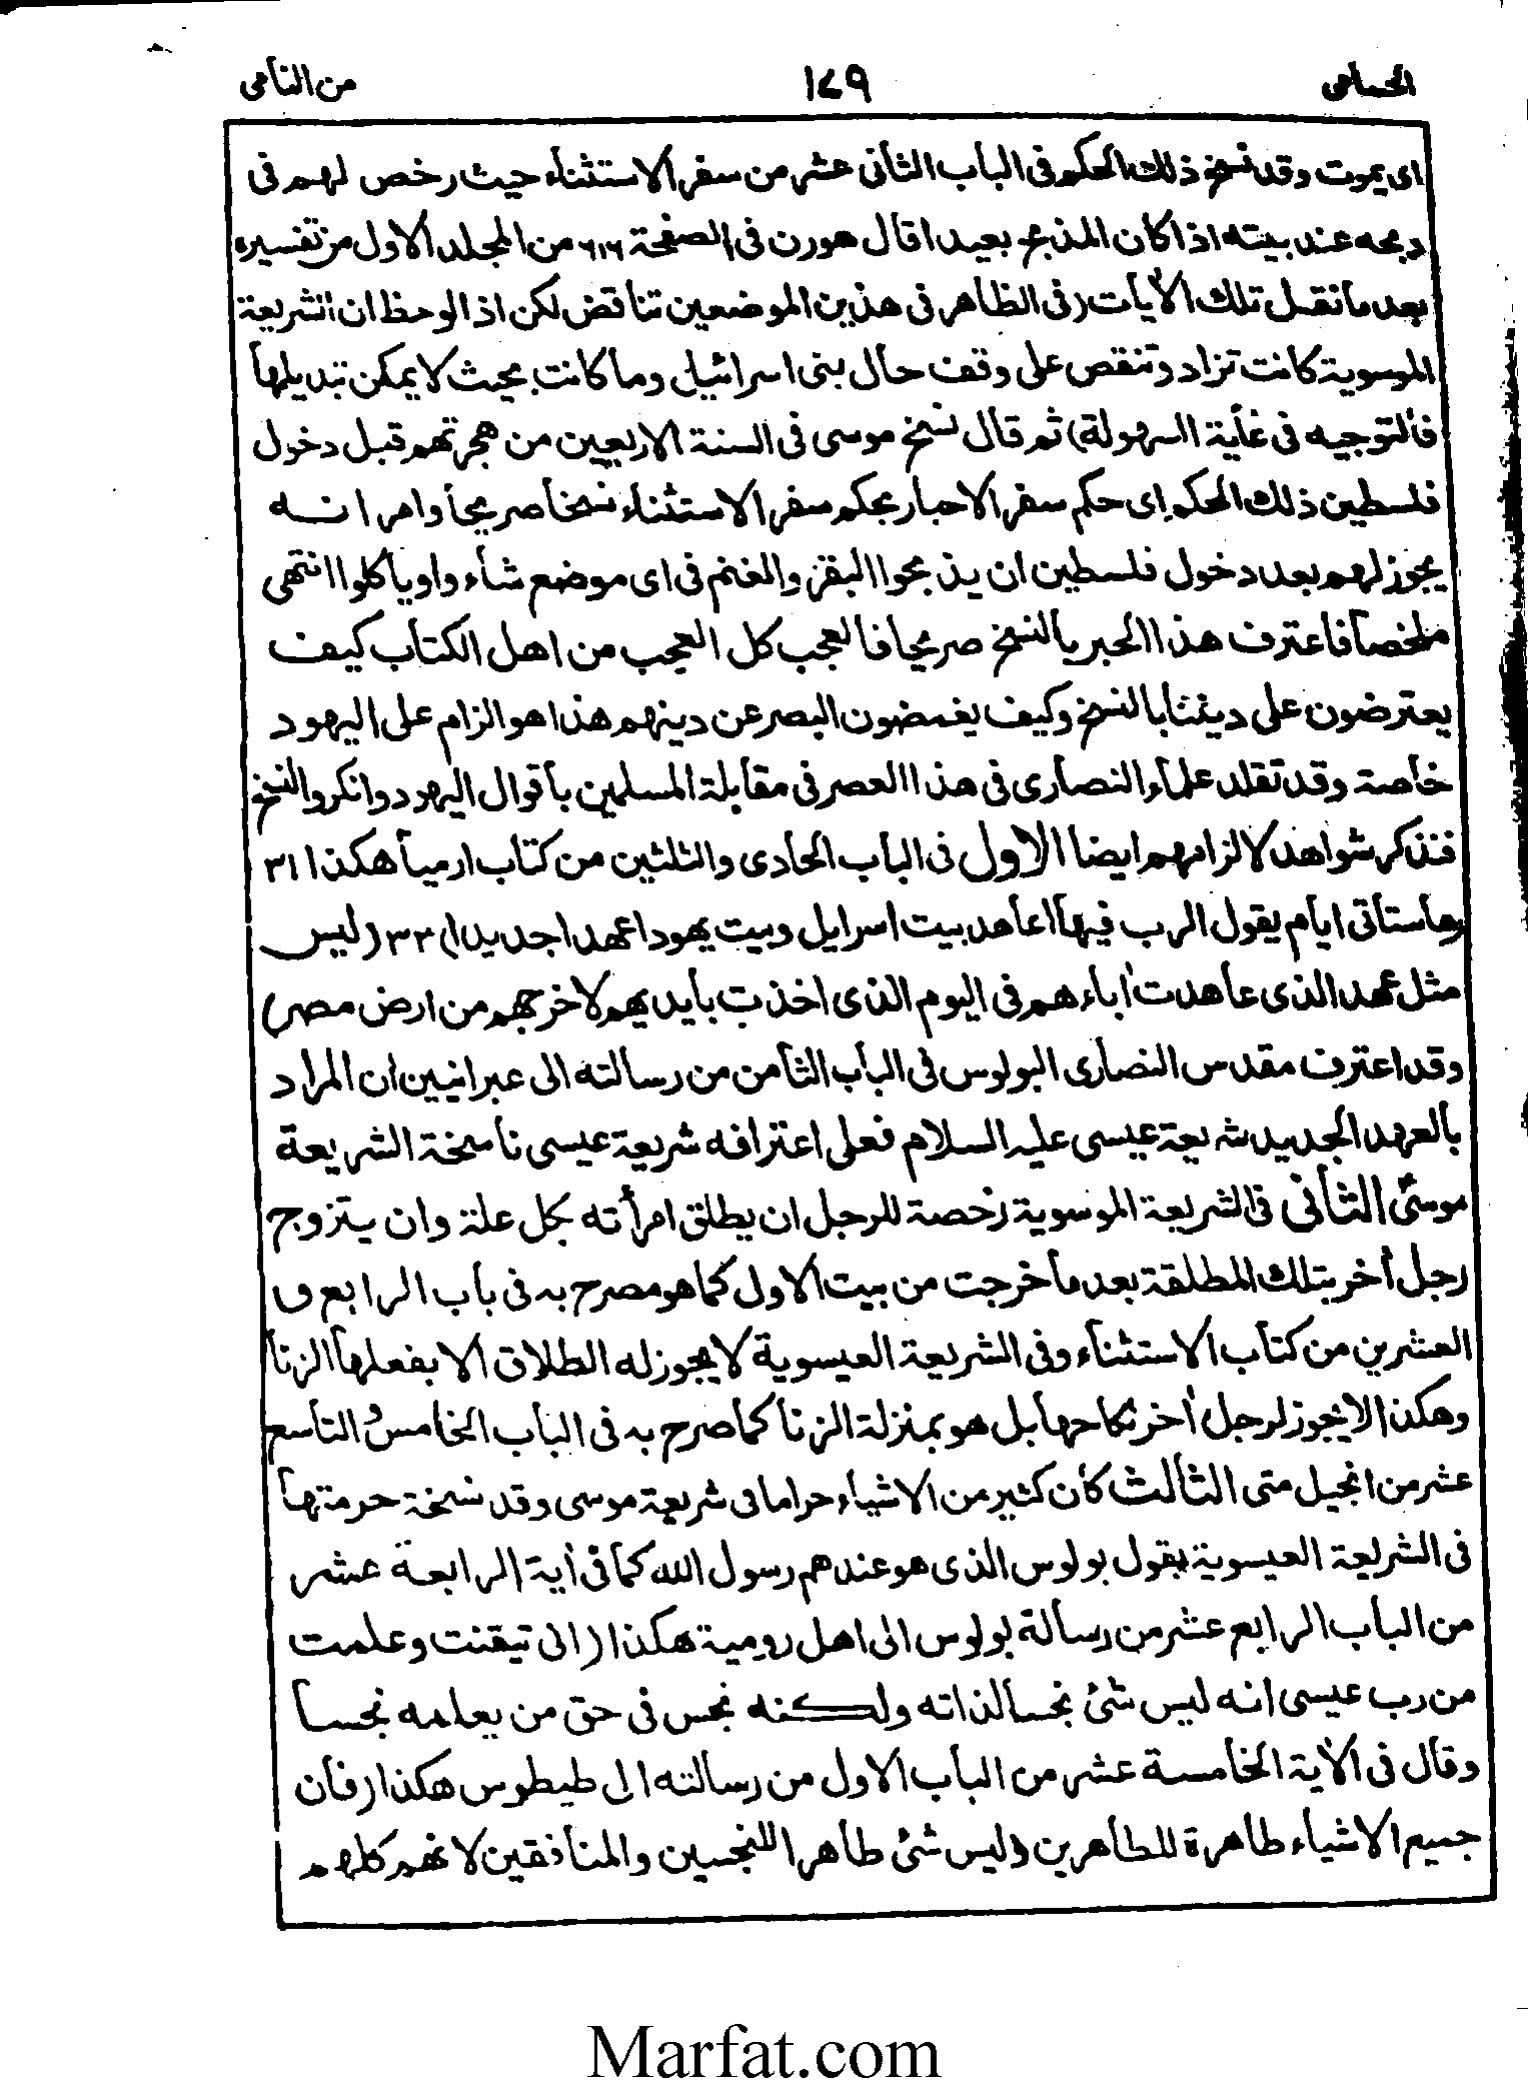 الحسامى ١٤٩ من النامى
اى يموت وقد نسخ ذلك الحكم فى الباب الثانى عشر من سفر الاستثناء حيث رخص لهم فى
ذبحه عند بيته اذا كان المذبح بعيدا قال هورن فى الصفحة ٦١٦ من المجلد الاول من تفسيره
بعد ما نقل تلك الاٰيات (فى الظاهر فى هذين الموضعين تناقض لكن اذا لوحظ ان الشريعة
الموسوية كانت تزاد وتنقص على وقف حال بنى اسرائيل وما كانت بحيث لا يمكن تبديلها
فالتوجيه فى غاية السهولة) ثم قال نسخ موسى فى السنة الاربعين من هجرتهم قبل دخول
فلسطين ذلك الحكم اى حكم سفر الاحبار بحكم سفر الاستثناء نسخا صريحا وامر انه
يجوز لهم بعد دخول فلسطين ان يذبحوا البقر والغنم فى اى موضع شاءوا ويأكلوا انتهى
ملخصا فاعترف هذا الحبر بالنسخ صريحا فالعجب كل العجب من اهل الكتاب كيف
يعترضون على ديننا بالنسخ وكيف يغمضون البصر عن دينهم هذا هو الزام على اليهود
خاصة وقد تقلد علماء النصارى فى هذا العصر فى مقابلة المسلمين باقوال اليهود وانكروا النسخ
فنذكر شواهد لالزامهم ايضا الاول فى الباب الحادى والثلثين من كتاب ارميا هكذا ٣١
(ها ستأتى ايام يقول الرب فيها اعاهد بيت اسرايل وبيت يهودا عهدا جديدا) ٣٢ (ليس
مثل عهد الذى عاهدت اٰباءهم فى اليوم الذى اخذت بايديهم لاخرجهم من ارض مصر)
وقد اعترف مقدس النصارى البولوس فى الباب الثامن من رسالته الى عبرانيين ان المراد
بالعهد الجديد شريعة عيسى عليه السلام فعلى اعترافه شريعة عيسى ناسخة الشريعة
موسىٰ الثانى فى الشريعة الموسوية رخصة للرجل ان يطلق امرأته بكل علة وان يتزوج
رجل أخر بتلك المطلقة بعد ما خرجت من بيت الاول كما هو مصرح به فى باب الرابع و
العشرين من كتاب الاستثناء وفى الشريعة العيسوية لا يجوز له الطلاق الا بفعلها الزنا
وهكذا لا يجوز لرجل اٰخر نكاحها بل هو بمنزلة الزنا كما صرح به فى الباب الخامس و التاسع
عشر من انجيل متى الثالث كان كثير من الاشياء حراما فى شريعة موسى وقد نسخة حرمتها
فى الشريعة العيسوية بقول بولوس الذى هو عندهم رسول الله كما فى اٰية الرابعة عشر
من الباب الرابع عشر من رسالة بولوس الى اهل رومية هكذا (انى تيقنت وعلمت
من رب عيسى انه ليس شئ نجسا لذاته ولكنه نجس فى حق من يعلمه نجسا
وقال فى الاٰية الخامسة عشر من الباب الاول من رسالته الى طيطوس هكذا (فان
جميع الاشياء طاهرة للطاهرين وليس شئ طاهرا للنجسين والمنافقين لانهم كلهم
Marfat.com